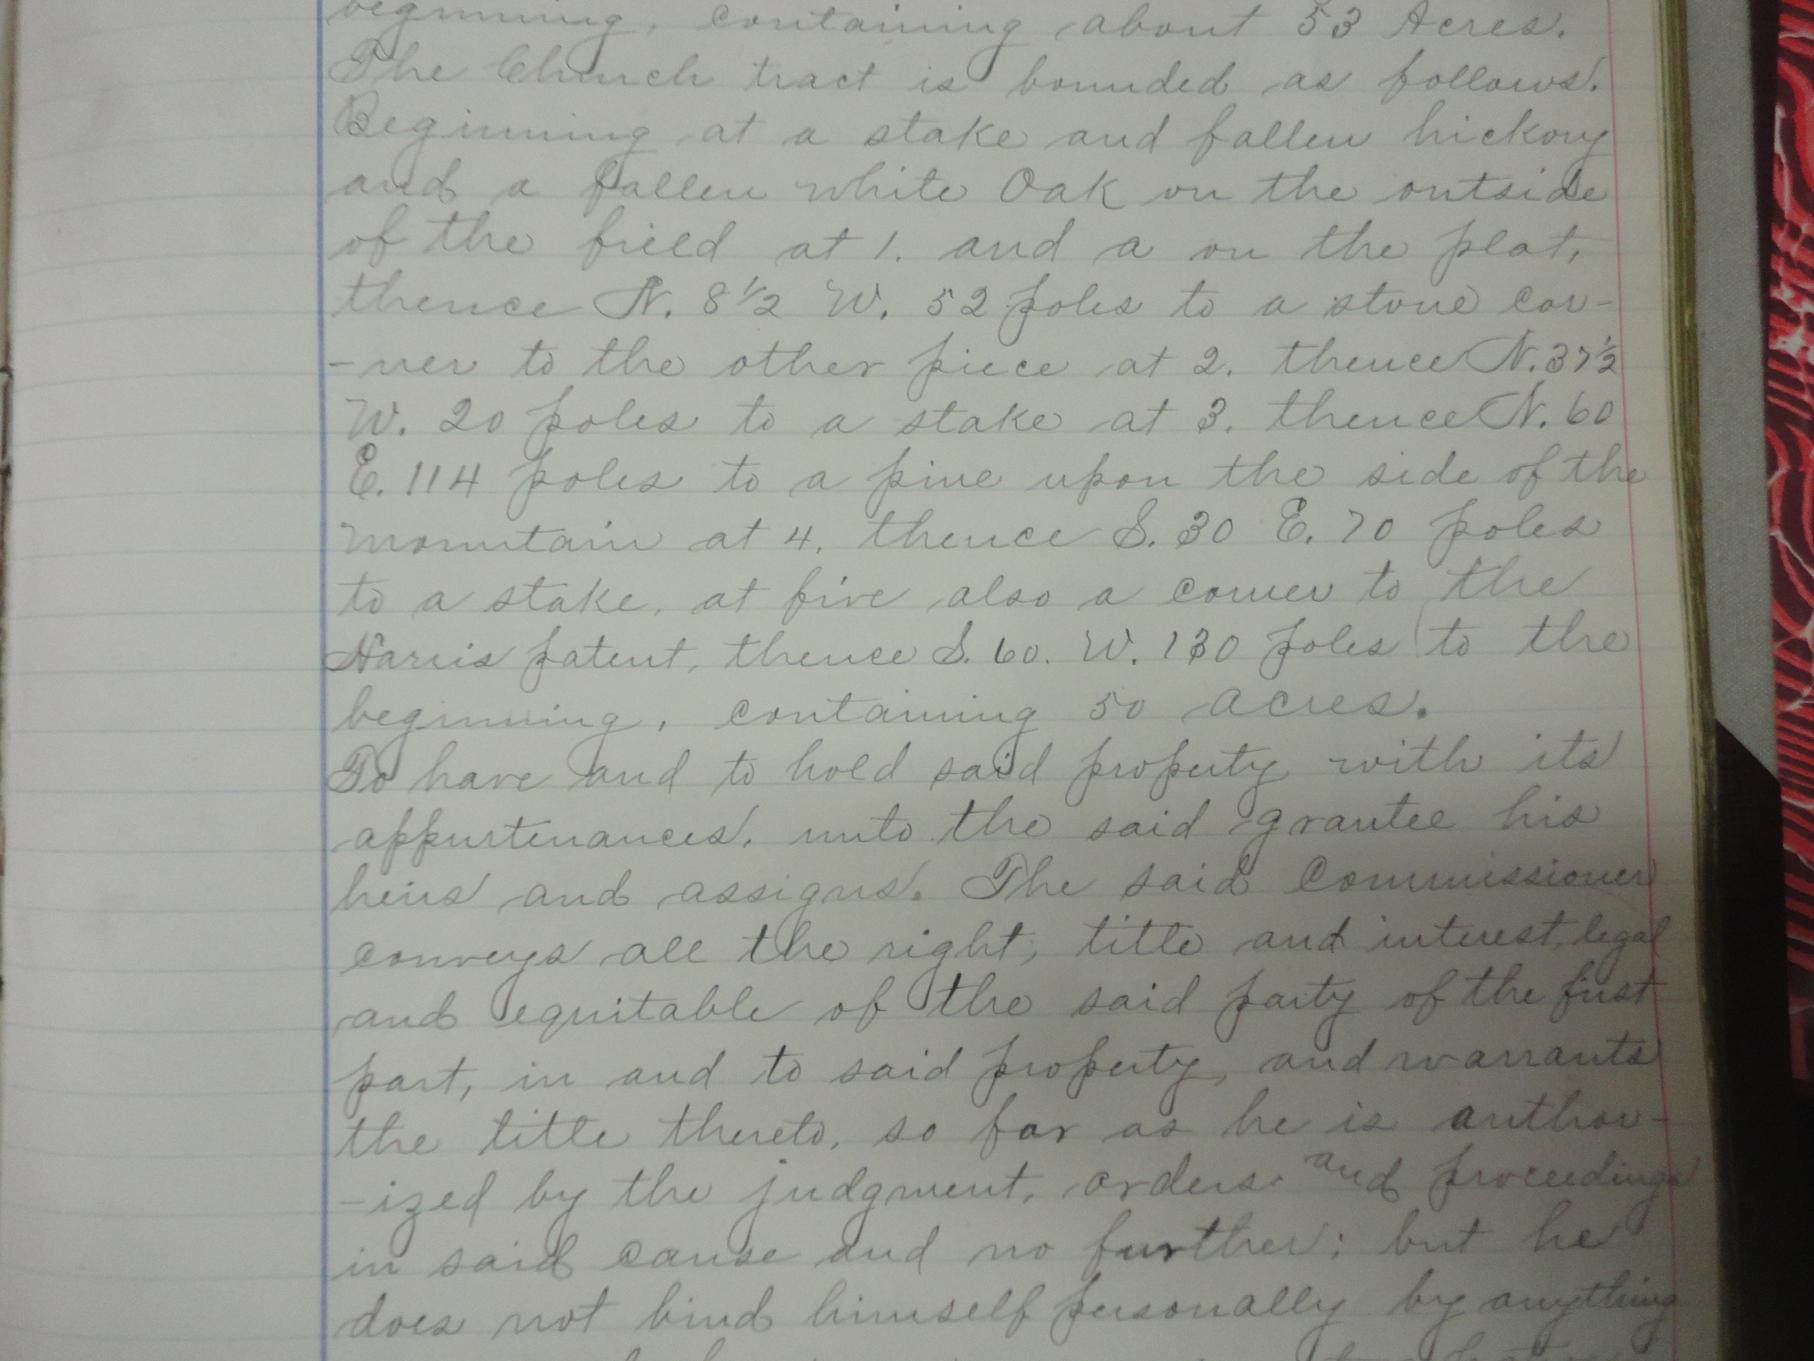 beginning, containing about 53 Acres.
The Church tract is bounded as follows.
Beginning at a stake and fallen hickory
and a fallen white Oak on the outside
of the field at 1. and a on the plat,
thence N. 8 1/2 W. 52 poles to a stone cor-
-ner to the other piece at 2. thence N. 37 1/2
W. 20 poles to a stake at 3. thence N. 60
E. 114 poles to a pine upon the side of the
mountain at 4. thence S. 30 E. 70 poles
to a stake, at five also a corner to the
Harris patent, thence S. 60. W. 130 poles to the
beginning, containing 50 acres.
To have and to hold said property with its
appurtenances, unto the said grantee his
heirs and assigns. The said Commissioner
conveys all the right, title and interest, legal
and equitable of the said party of the first
part, in and to said property, and warrants
the title thereto, so far as he is author-
-ized by the judgment, orders and proceedings
in said cause and no further; but he
does not bind himself personally by anything